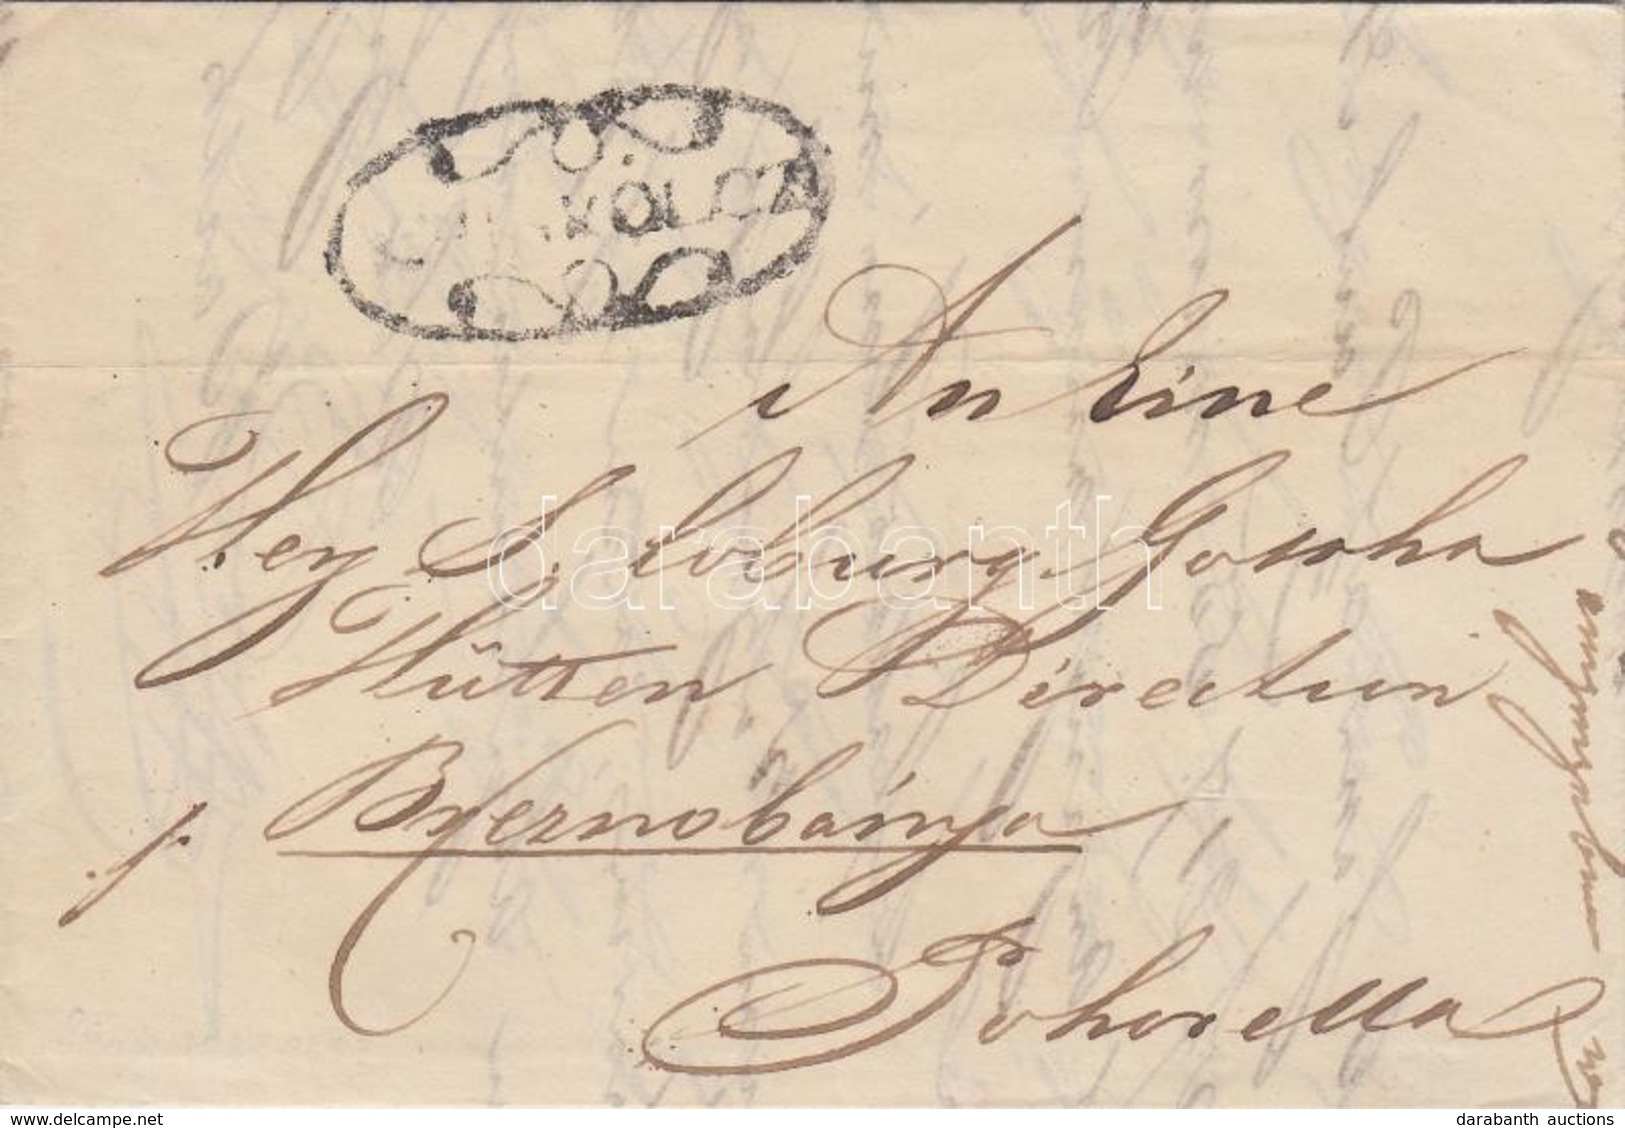 An Eine
Herz S. Coburg Gotha
Hütten Direction
p. Breznobánya
Pohorella
darabanth
www.delcampe.net
darabanth auctions